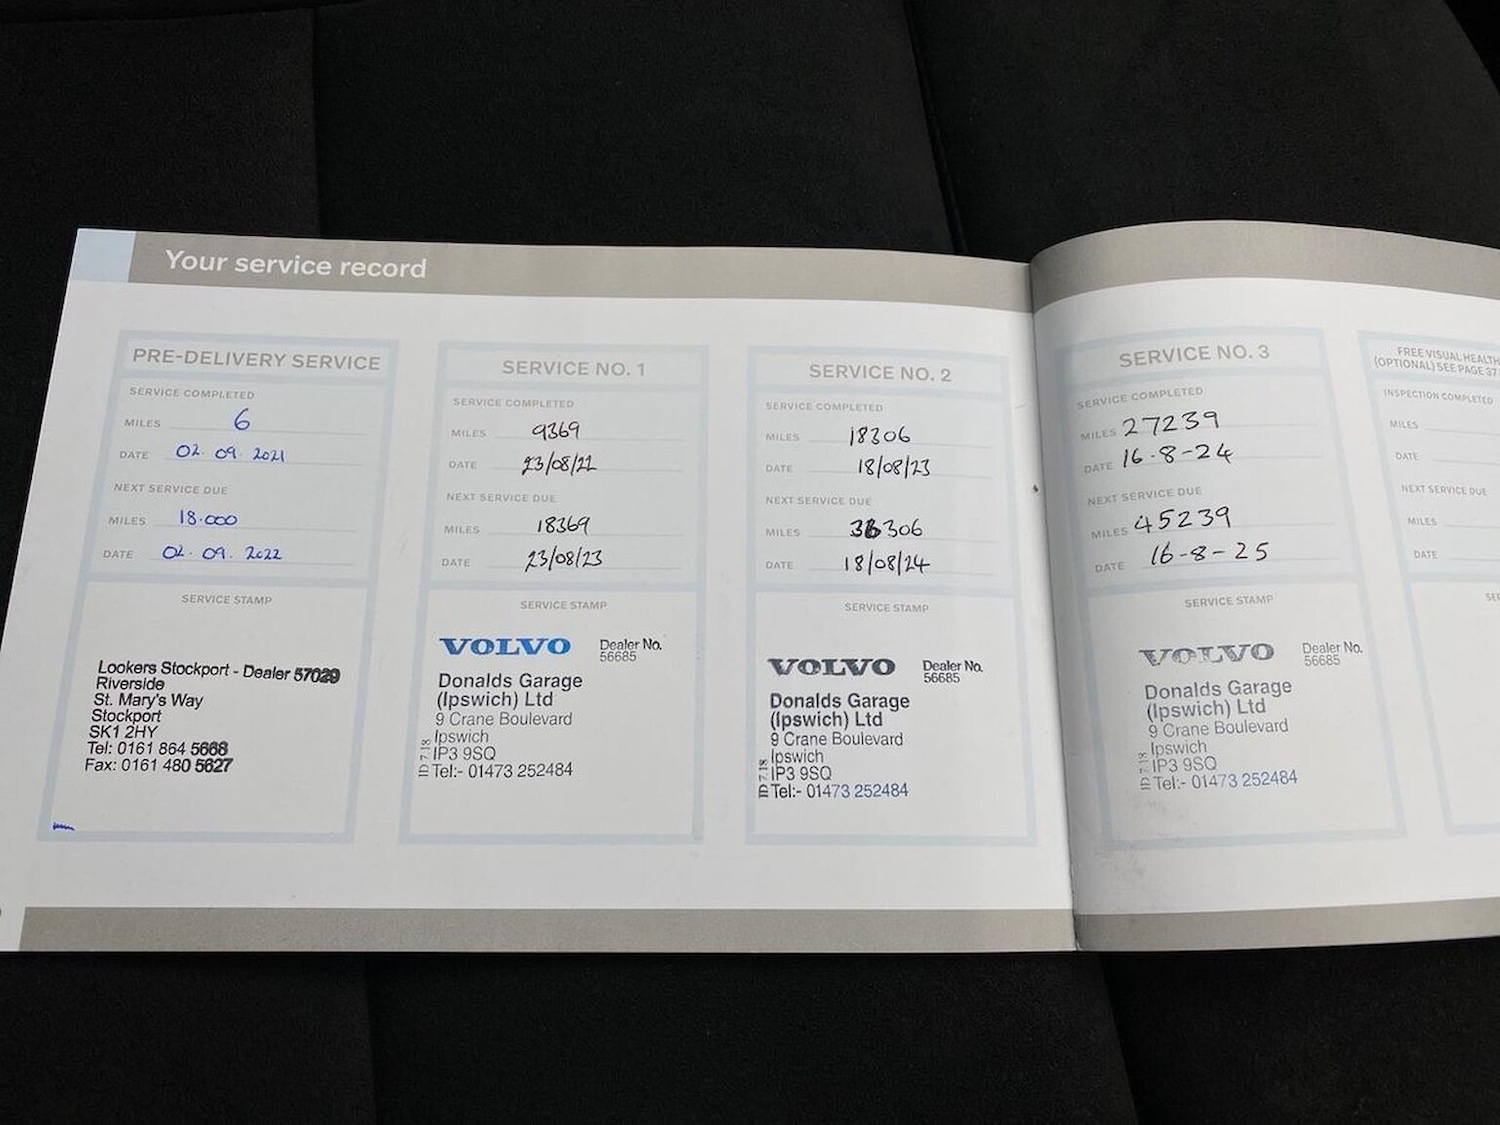 Your service record
PRE-DELIVERY SERVICE
SERVICE COMPLETED
MILES 6
DATE 02.09.2021
NEXT SERVICE DUE
MILES 18.000
DATE 02.09.2022
SERVICE STAMP
Lookers Stockport - Dealer 57029
Riverside
St. Mary's Way
Stockport
SK1 2HY
Tel: 0161 864 5668
Fax: 0161 480 5627
SERVICE NO. 1
SERVICE COMPLETED
MILES 9369
DATE 23/08/22
NEXT SERVICE DUE
MILES 18369
DATE 23/08/23
SERVICE STAMP
VOLVO Dealer No.
56685
Donalds Garage
(Ipswich) Ltd
9 Crane Boulevard
Ipswich
IP3 9SQ
Tel:- 01473 252484
ID 7.18
SERVICE NO. 2
SERVICE COMPLETED
MILES 18306
DATE 18/08/23
NEXT SERVICE DUE
MILES 36306
DATE 18/08/24
SERVICE STAMP
VOLVO Dealer No.
56685
Donalds Garage
(Ipswich) Ltd
9 Crane Boulevard
Ipswich
IP3 9SQ
Tel:- 01473 252484
ID 7.18
SERVICE NO. 3
SERVICE COMPLETED
MILES 27239
DATE 16-8-24
NEXT SERVICE DUE
MILES 45239
DATE 16-8-25
SERVICE STAMP
VOLVO Dealer No.
56685
Donalds Garage
(Ipswich) Ltd
9 Crane Boulevard
Ipswich
IP3 9SQ
Tel:- 01473 252484
ID 7.18
FREE VISUAL HEALTH
(OPTIONAL) SEE PAGE 37
INSPECTION COMPLETED
MILES
DATE
NEXT SERVICE DUE
MILES
DATE